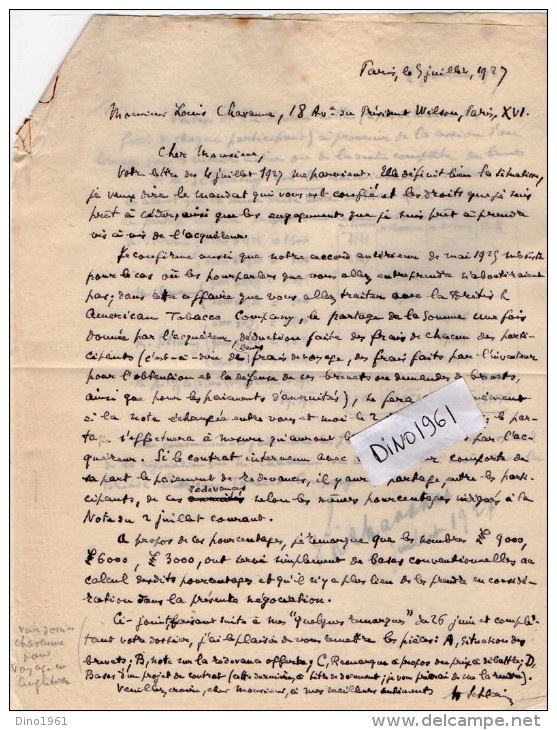 Paris, le 5 juillet, 1927
Monsieur Louis Chavanne, 18 Av. du Président Wilson, Paris, XVI.
Cher Monsieur,
Votre lettre du 4 juillet 1927 me parvient. Elle définit bien la situation,
je veux dire le mandat qui vous est confié et les droits que je suis
prêt à céder, ainsi que les engagements que je suis prêt à prendre
vis à vis de l'acquéreur.
Je confirme aussi que notre accord antérieur de mai 1925 subsiste
pour le cas où les pourparlers que vous allez entreprendre n'aboutiraient
pas; dans cette affaire que vous allez traiter avec la British &
American Tobacco Company, le partage de la somme une fois
donnée par l'acquéreur, déduction faite des frais de chacun des parti-
cipants (c'est-à-dire de leurs frais de voyage, des frais faits par l'inventeur
pour l'obtention et la défense de ses brevets ou demandes de brevets,
ainsi que pour les paiements d'annuités), se fera
à la note échangée entre vous et moi le 2 le par-
tage s'effectuera à mesure qu'auront par l'ac-
quéreur. Si le contrat intervenu avec comporte de
sa part le paiement de redevances, il y aura partage, entre les parti-
cipants, de ces redevances selon les mêmes pourcentages indiqués à la
Note du 2 juillet courant.
A propos de ces pourcentages, je remarque que les nombres £ 9000,
£ 6000, £ 3000, ont servi simplement de bases conventionnelles au
calcul desdits pourcentages et qu'il n'y a plus lieu de les prendre en considé-
ration dans la présente négociation.
Ci-joint, faisant suite à mes "Quelques remarques" du 26 juin et complé-
tant votre dossier, j'ai le plaisir de vous remettre les pièces: A, Situation des
brevets; B, note sur la redevance offerte; C, Remarque à propos du prix à débattre; D,
Bases d'un projet de contrat (cette dernière, à titre de document, je vous prierai de me la rendre).
Veuillez croire, cher Monsieur, à mes meilleurs sentiments
voir dossier
Chavanne
pour
voyage en
Angleterre
DINO1961
Dino1961
delcampe.net